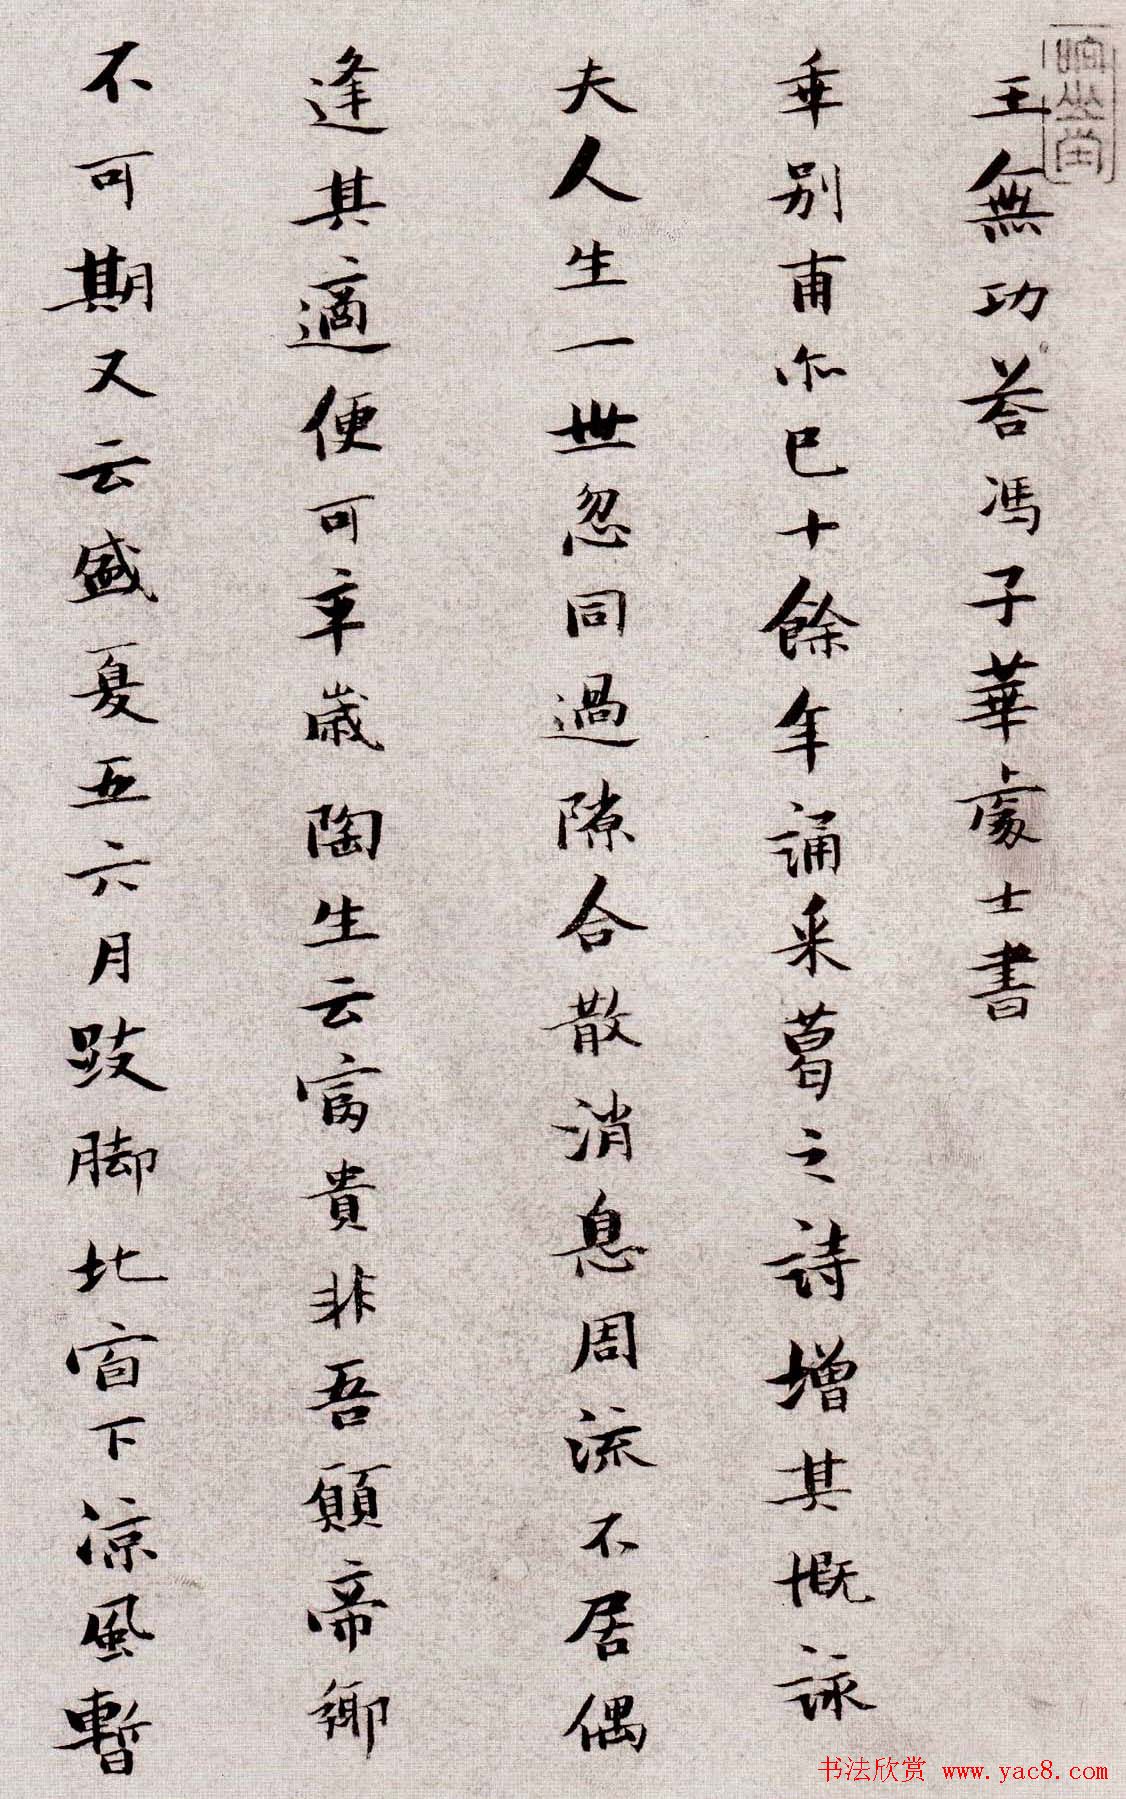 王無功荅馮子華處士書
乖別甫尒巳十餘年誦采葛之詩增其慨詠
夫人生一世忽同過隙合散消息周流不居偶
逢其適便可卒歲陶生云富貴非吾願帝鄉
不可期又云盛夏五六月跂脚北窗下涼風暫
书法欣赏 www.yac8.com